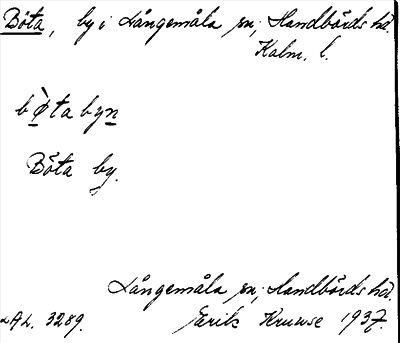 Böta, by i Långemåla sn; Handbörds hd.
Kalm. l.
bø̀ta byn
Böta by.
Långemåla sn; Handbörds hd.
LAL. 3289. Erik Kruuse 1937.